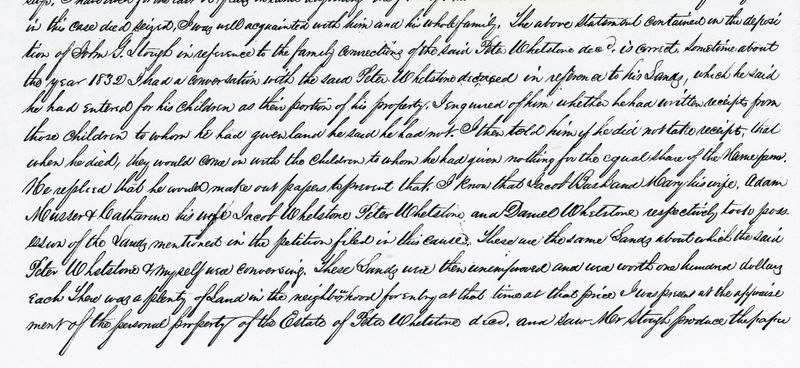 in this case died seized, I was well acquainted with him and his whole family, The above statement contained in the deposi
tion of John G. Stough in reference to the family connections of the said Peter Whetstone decd. is correct, sometime about
the year 1832 I had a conversation with the said Peter Whetstone deceased in reference to his Lands, which he said
he had entered for his children as their portion of his property. I enquired of him whether he had written receipts from
those children to whom he had given land he said he had not. I then told him if he did not take receipts that
when he died, they would come in with the children to whom he had given nothing for the equal share of the Home farm.
He replied that he would make out papers to prevent that. I know that Jacob and Mary his wife, Adam
Musser & Catharine his wife Jacob Whetstone Peter Whetstone and Daniel Whetstone respectively took poss
ession of the Lands mentioned in the petition filed in this cause. These are the same Lands about which the said
Peter Whetstone & myself were conversing. These Lands were then unimproved and were worth one hundred dollars
each There was a plenty of Land in the neighbourhood for entry at that time at that price I was present at the appraise
ment of the personal property of the Estate of Peter Whetstone decd. and saw Mr Stough produce the paper